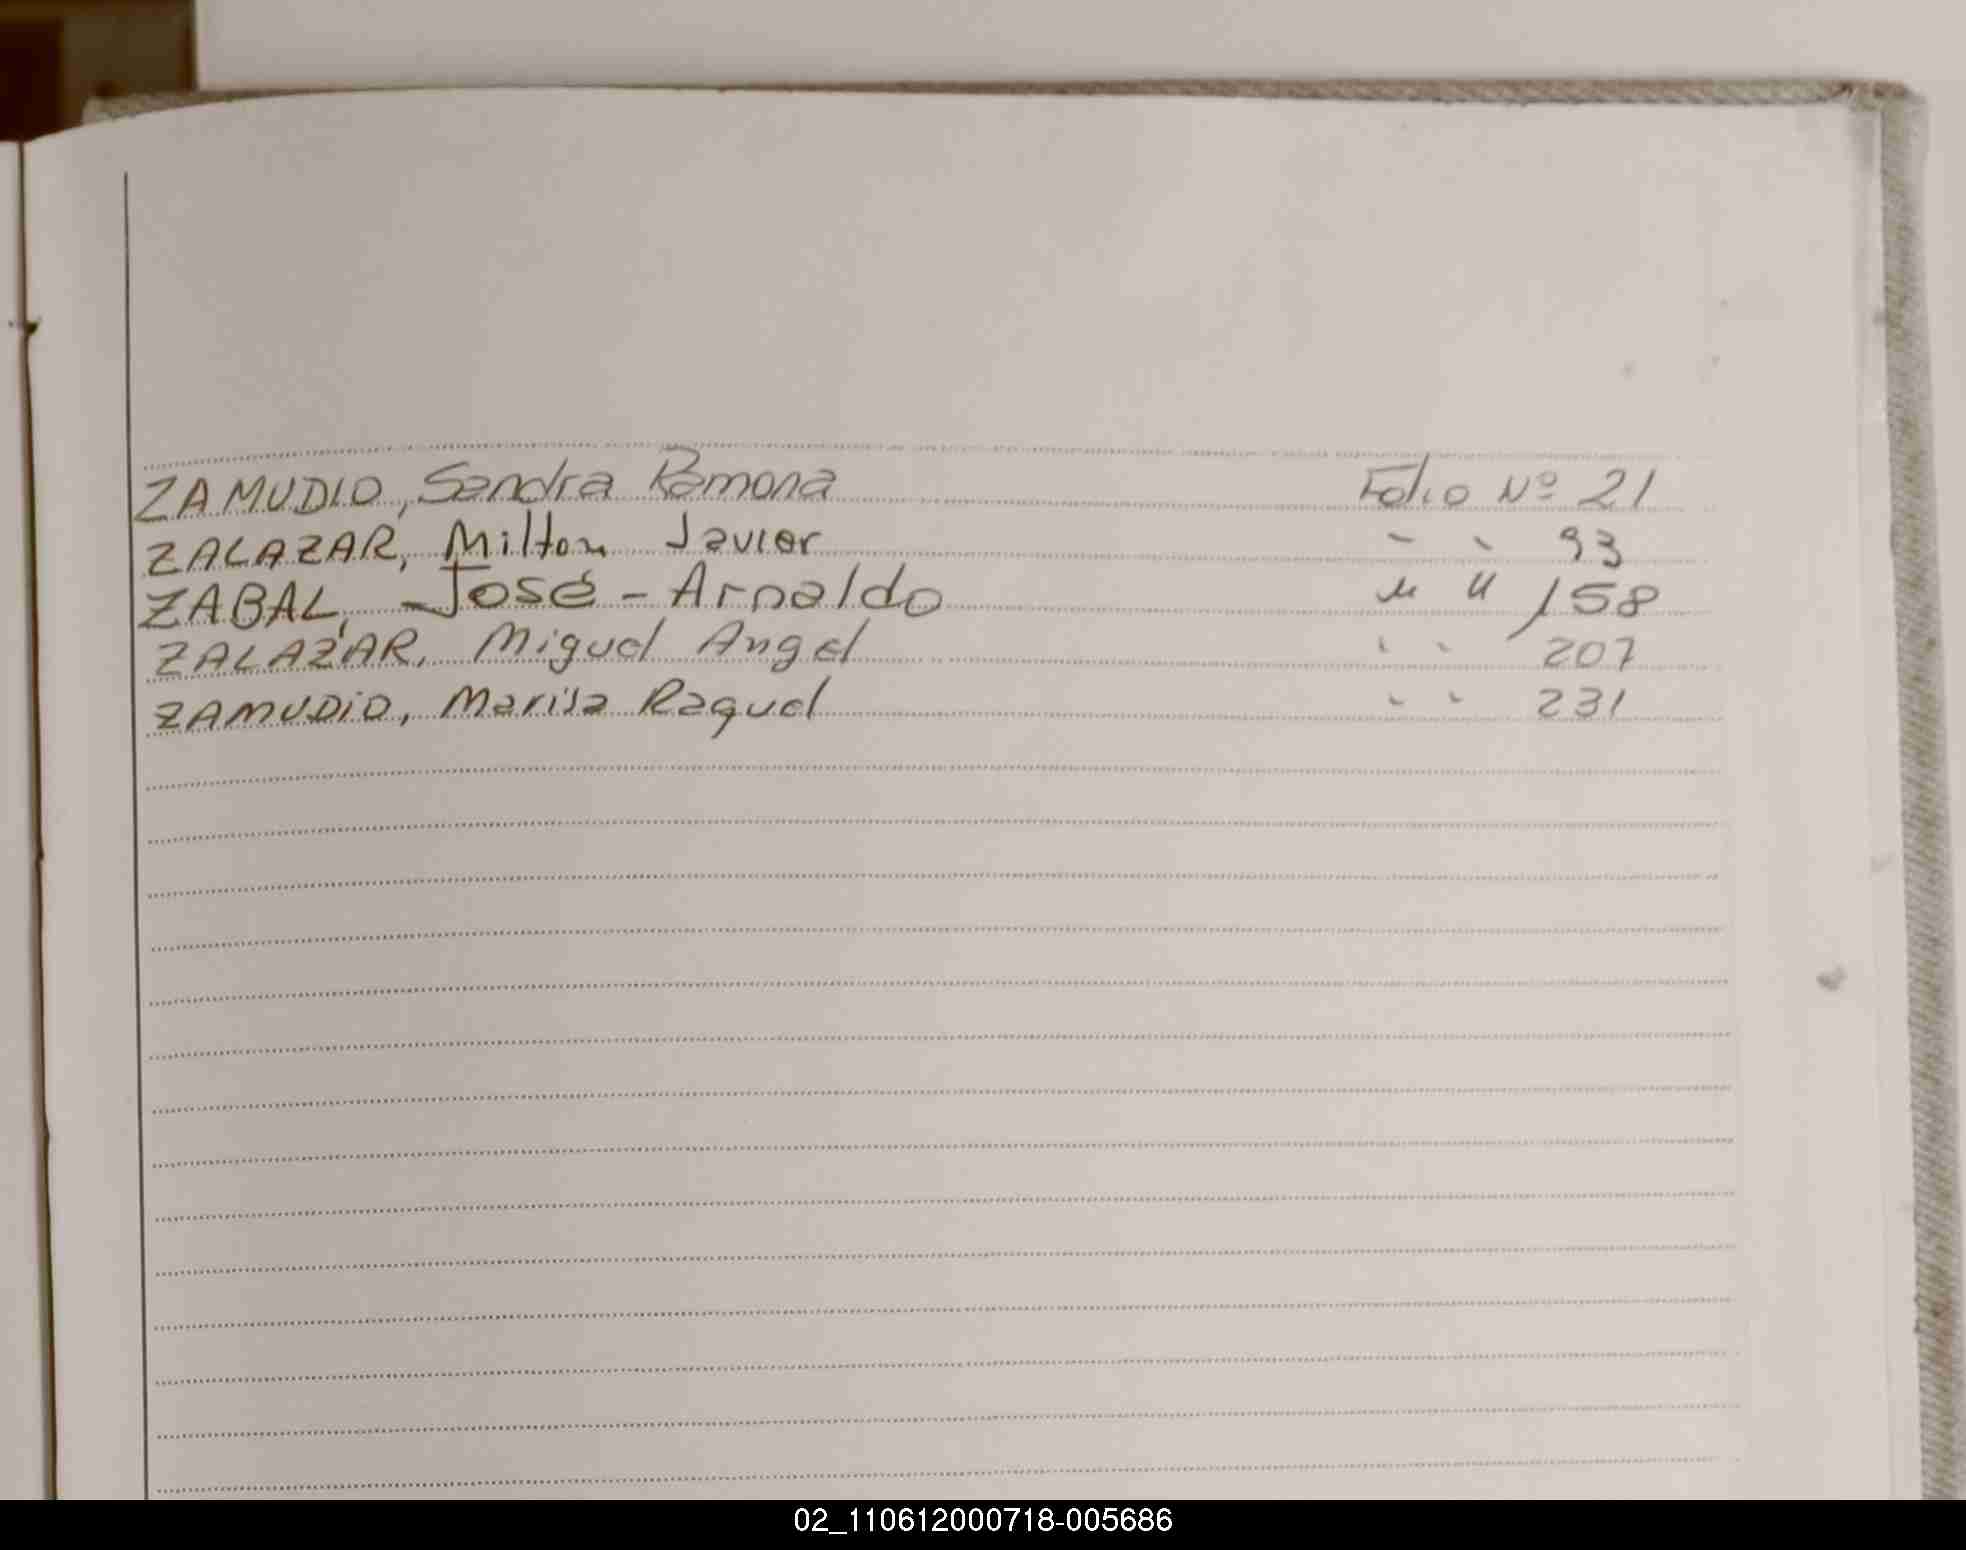 ZAMUDIO, Sandra Ramona Folio Nº 21
ZALAZAR, Milton Javier " " 93
ZABAL, José - Arnaldo " " 158
ZALAZAR, Miguel Angel " " 207
ZAMUDIO, Marisa Raquel " " 231
02_110612000718-005686